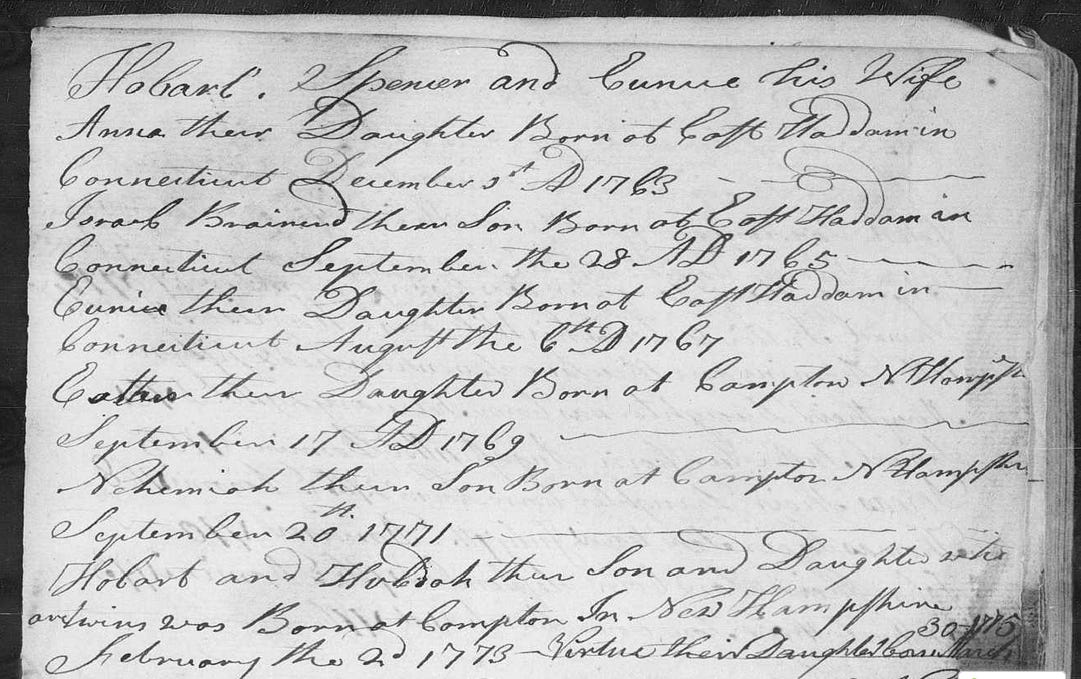 Hobart. Spencer and Eunice his Wife
Anna their Daughter Born at East Haddam in
Connecticut December 3rd AD 1763
Israel Brainerd their Son Born at East Haddam in
Connecticut September the 28 AD 1765
Eunice their Daughter Born at East Haddam in
Connecticut August the 6th AD 1767
Esther their Daughter Born at Campton N Hampshr
September 17 AD 1769
Nehemiah their Son Born at Campton N Hampshr
September 20th 1771
Hobart and Huldah their Son and Daughter who
are twins was Born at Campton In New Hampshire
February the 2d 1773 - Virtue their Daughter born March
30-1775